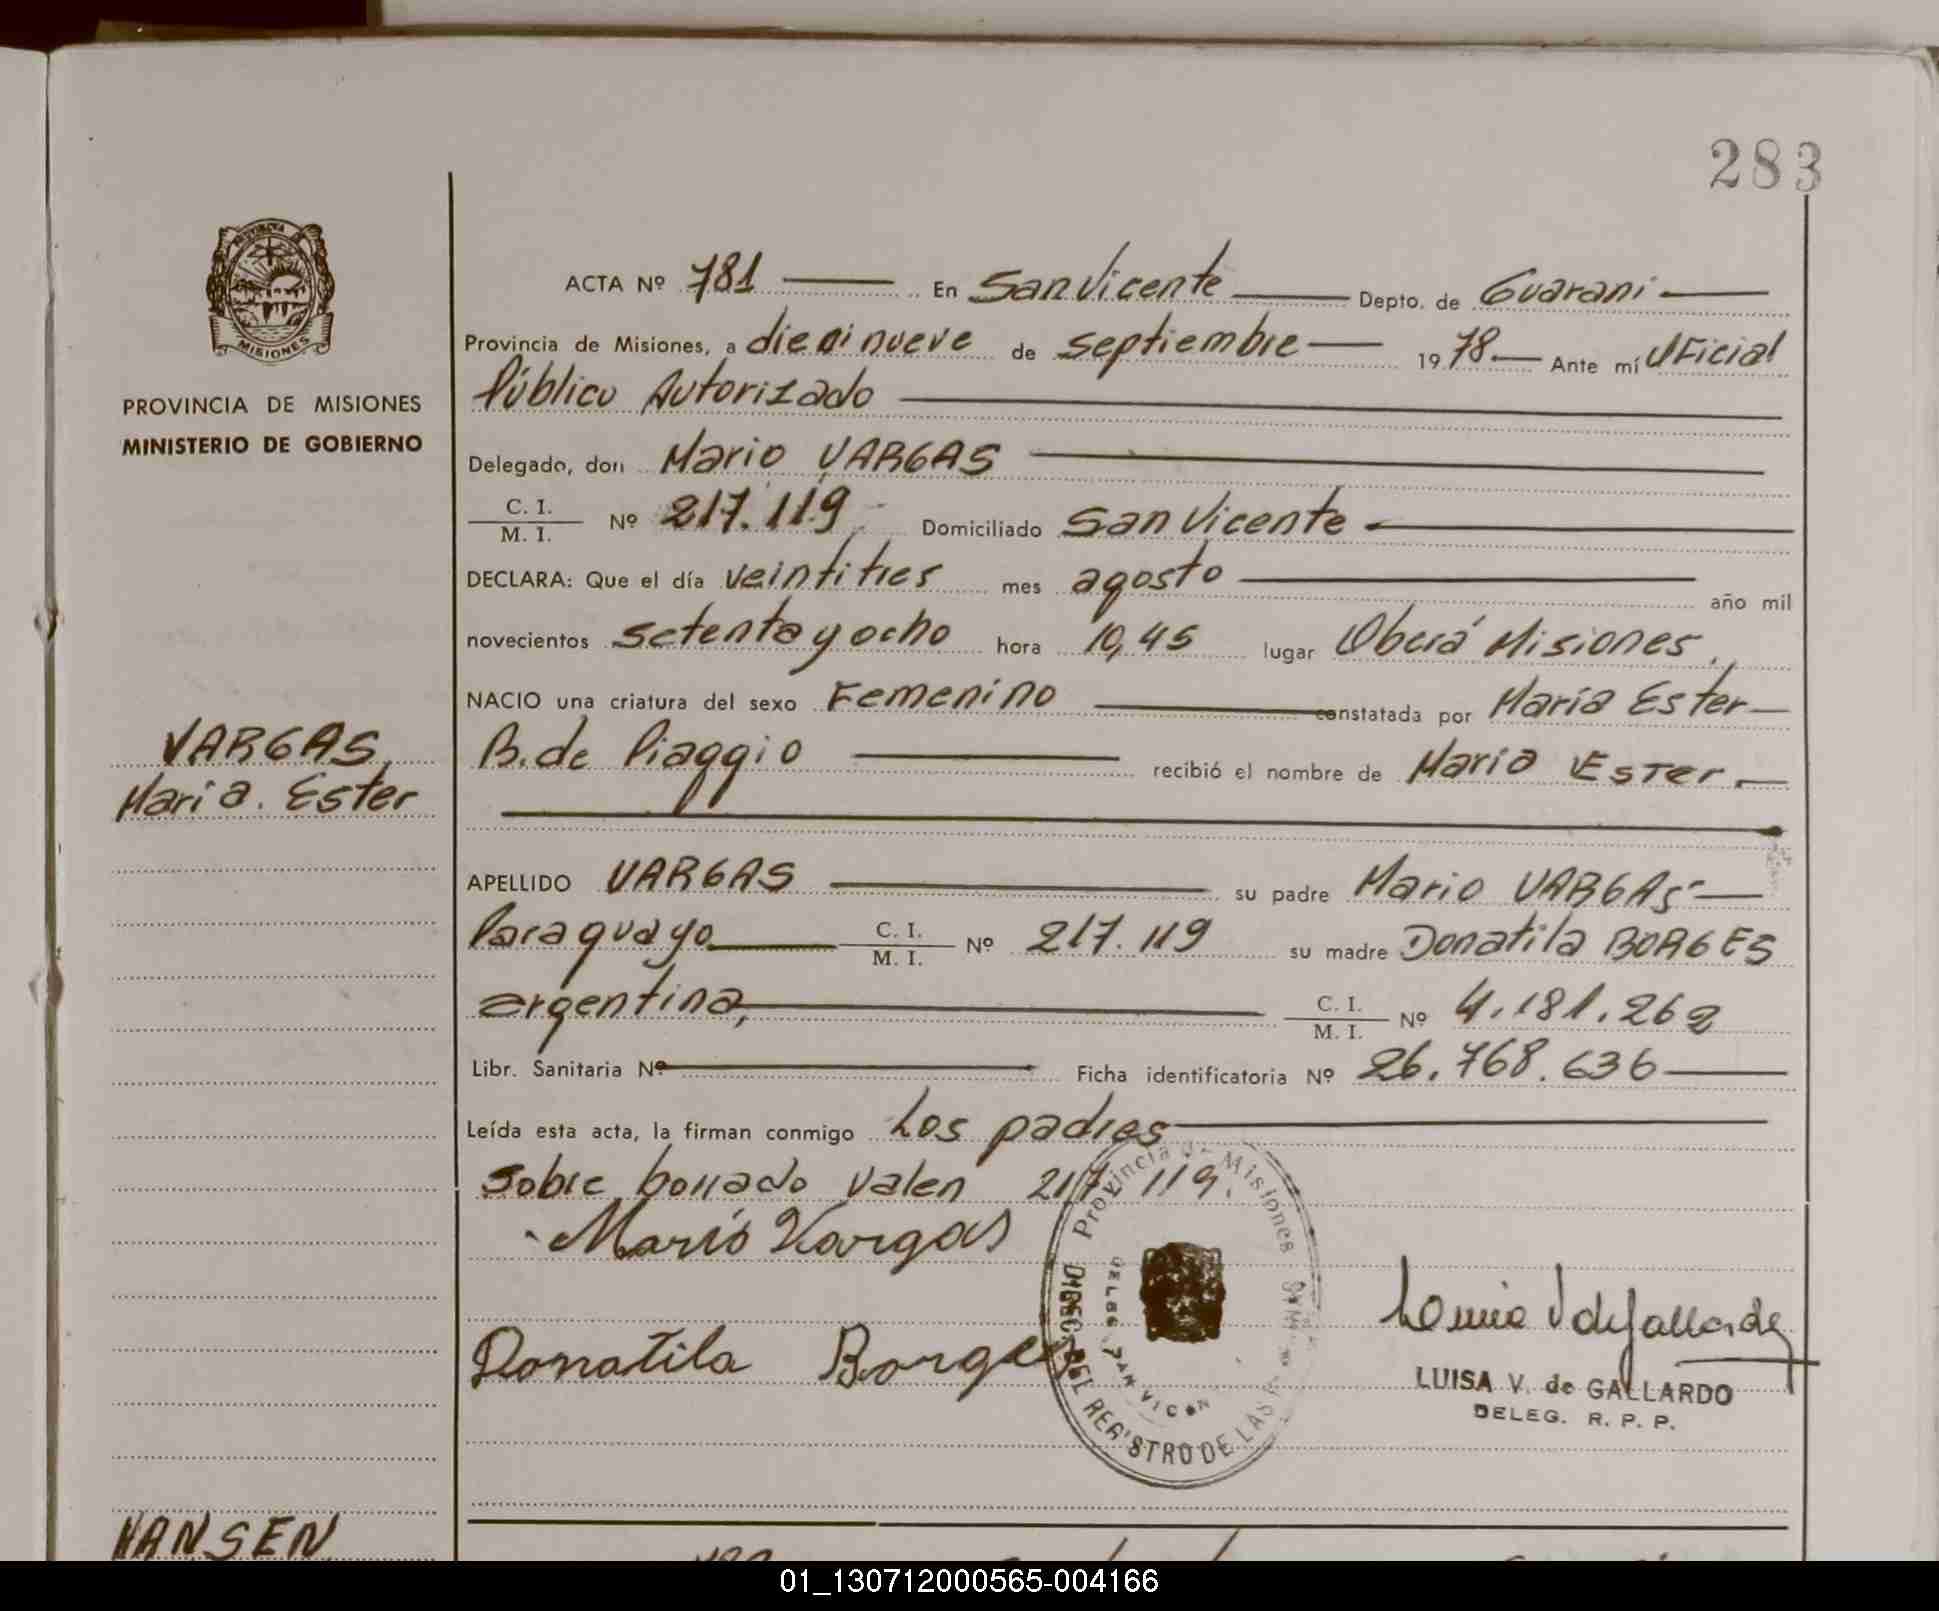 283
ACTA Nº 781 En San Vicente Depto. de Guarani
Provincia de Misiones, a diecinueve de septiembre 1978 Ante mí Oficial
Público Autorizado
PROVINCIA DE MISIONES
MINISTERIO DE GOBIERNO
Delegado, don Mario VARGAS
C. I.
M. I. Nº 217.119 Domiciliado San Vicente
DECLARA: Que el día veintitres mes agosto año mil
novecientos setenta y ocho hora 10,45 lugar Oberá Misiones,
NACIO una criatura del sexo Femenino constatada por María Ester
VARGAS
Maria. Ester
B. de Piaggio recibió el nombre de Maria Ester
APELLIDO VARGAS su padre Mario VARGAS
Paraguayo C. I. M. I. Nº 217.119 su madre Donatila BORGES
argentina, C. I. M. I. Nº 4.181.262
Libr. Sanitaria Nº Ficha identificatoria Nº 26.768.636
Leída esta acta, la firman conmigo Los padres
sobre borrado valen 217.119.
Mario Vargas
Donatila Borges
Provincia de Misiones
REGISTRO DE LAS
LUISA V. de GALLARDO
DELEG. R. P. P.
HANSEN
01_130712000565-004166